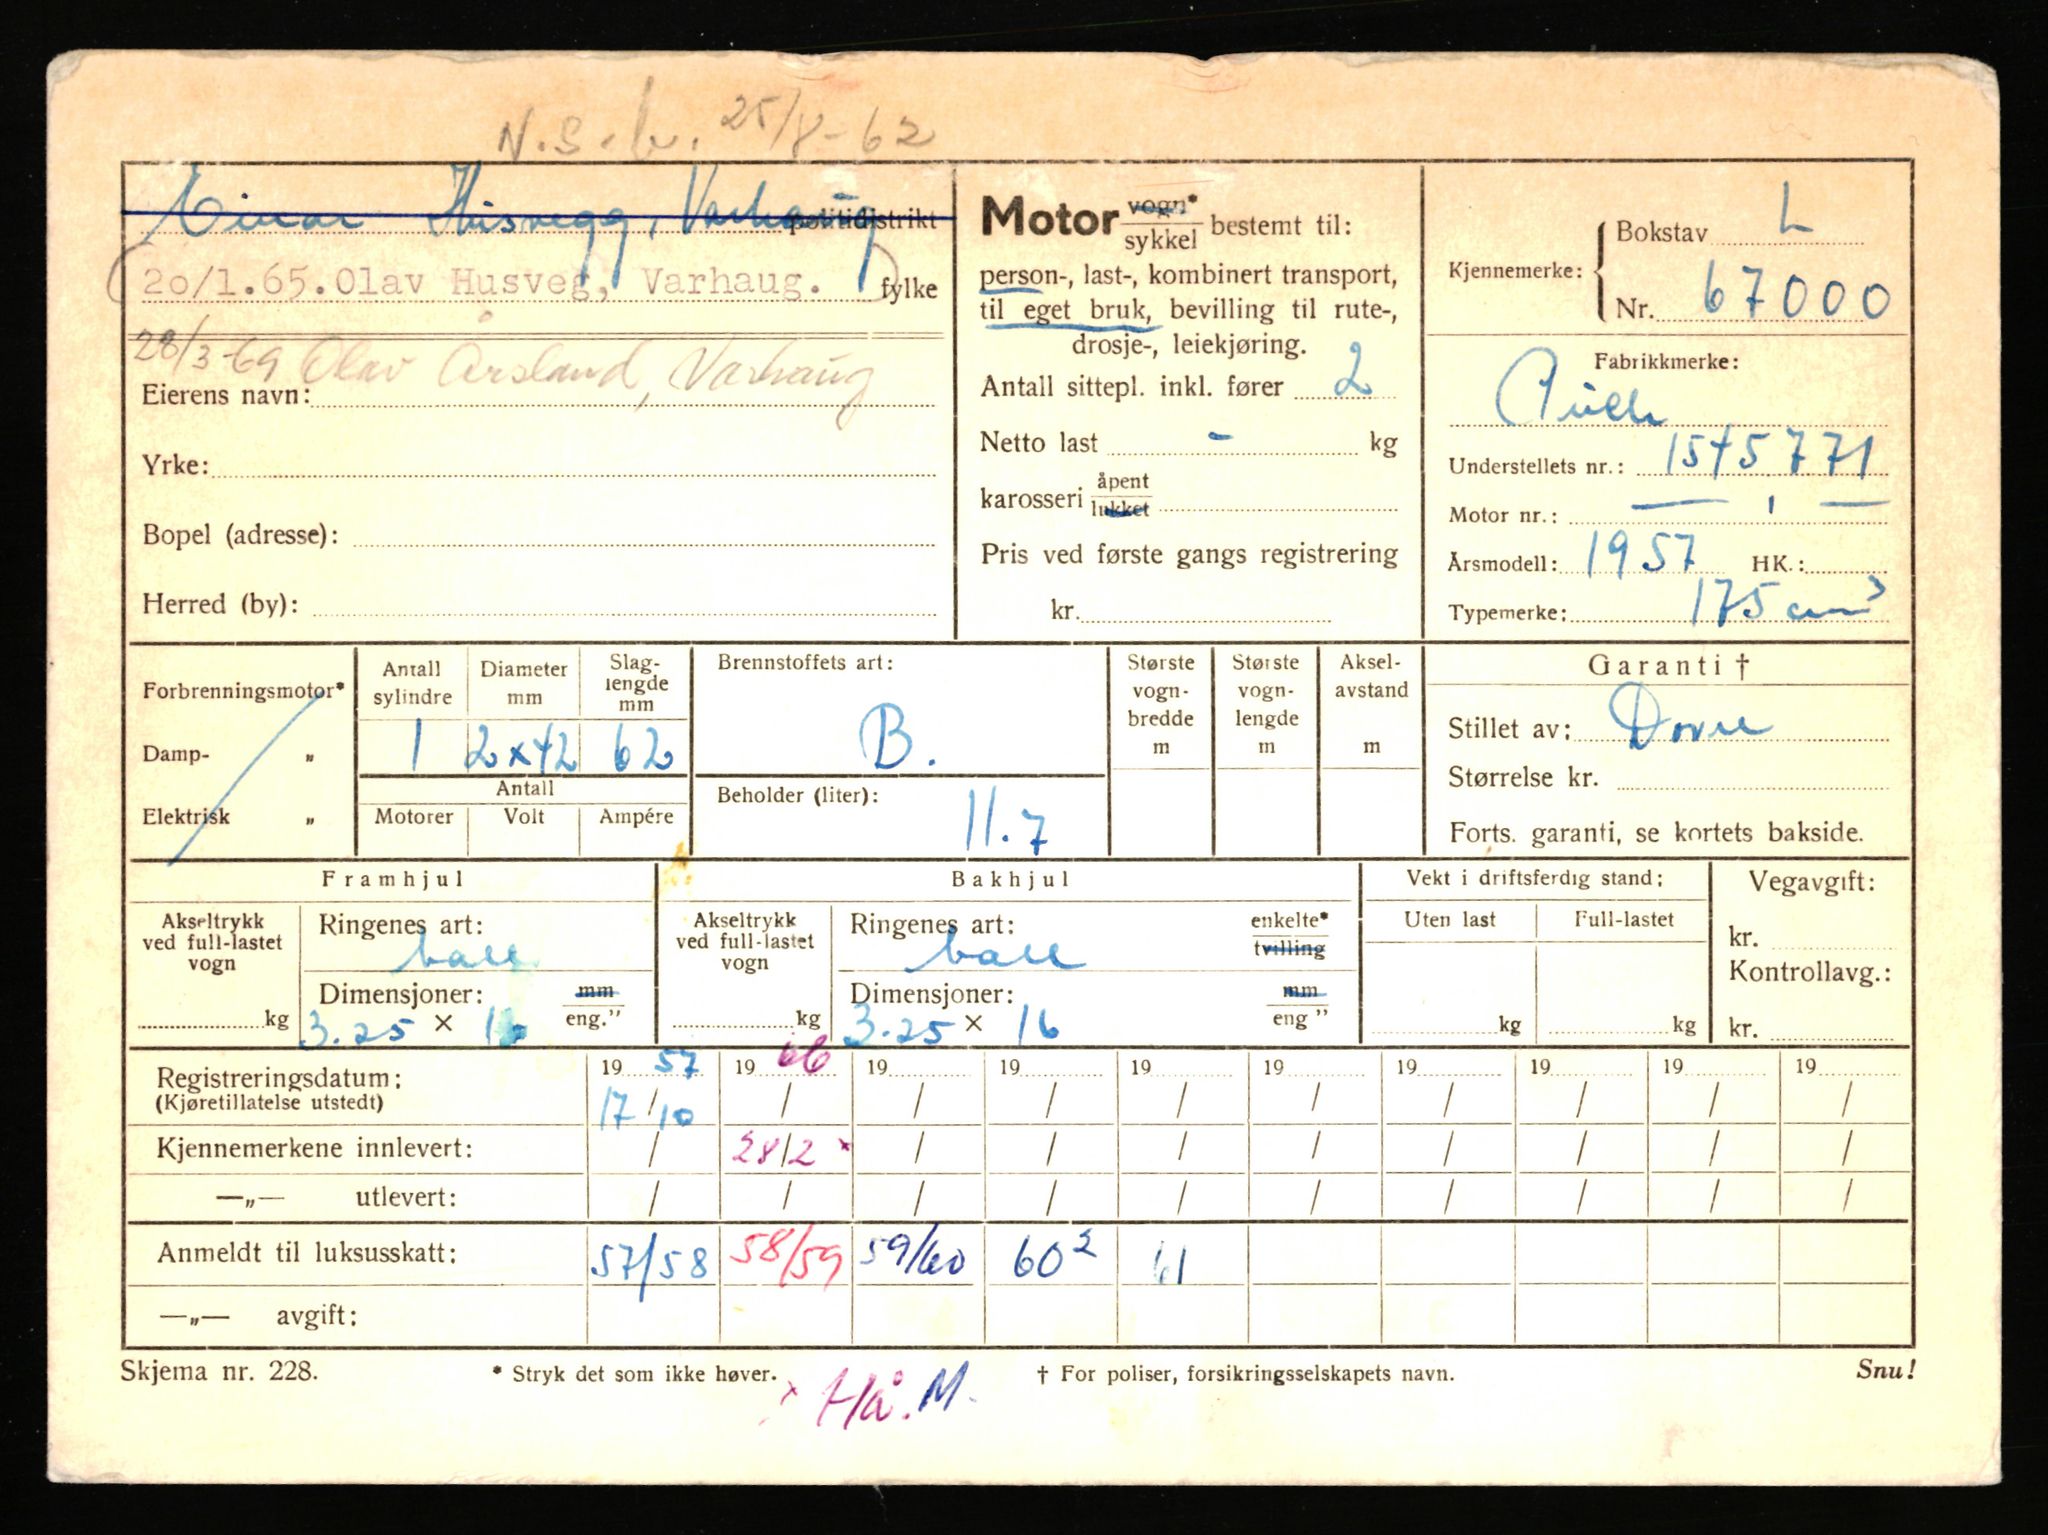 N.S. 25/8-62
Einar Husvegg, Varhaug politidistrikt
20/1.65. Olav Husveg, Varhaug. fylke
28/3-69 Olav Årsland, Varhaug
Eierens navn:
Yrke:
Bopel (adresse):
Herred (by):
Motor vogn* / sykkel bestemt til:
person-, last-, kombinert transport,
til eget bruk, bevilling til rute-,
drosje-, leiekjøring.
Antall sittepl. inkl. fører 2
Netto last - kg
karosseri åpent / lukket
Pris ved første gangs registrering
kr.
Kjennemerke: Bokstav L
Nr. 67000
Fabrikkmerke:
Puch
Understellets nr.: 1545771
Motor nr.: — " —
Årsmodell: 1957 HK.:
Typemerke: 175 cm³
Forbrenningsmotor*
Damp- „
Elektrisk „
Antall sylindre Diameter mm Slag-lengde mm
1 2x42 62
Antall
Motorer Volt Ampére
Brennstoffets art:
B.
Beholder (liter):
11.7
Største vogn-bredde m
Største vogn-lengde m
Aksel-avstand m
Garanti †
Stillet av: Dovre
Størrelse kr.
Forts. garanti, se kortets bakside.
Framhjul
Akseltrykk ved full-lastet vogn kg
Ringenes art: ball
Dimensjoner: mm / eng."
3.25 x 16
Bakhjul
Akseltrykk ved full-lastet vogn kg
Ringenes art: enkelte* / tvilling
ball
Dimensjoner: mm / eng "
3.25 x 16
Vekt i driftsferdig stand:
Uten last Full-lastet
kg kg
Vegavgift:
kr.
Kontrollavg.:
kr.
Registreringsdatum: 19 57 19 66 19 19 19 19 19 19 19 19
(Kjøretillatelse utstedt) 17/10 / / / / / / / / /
Kjennemerkene innlevert: / 28/2 x / / / / / / / /
—„— utlevert: / / / / / / / / / /
Anmeldt til luksusskatt: 57/58 58/59 59/60 60² 61
—„— avgift:
Skjema nr. 228. * Stryk det som ikke høver. † For poliser, forsikringsselskapets navn. Snu!
x Hå. M.